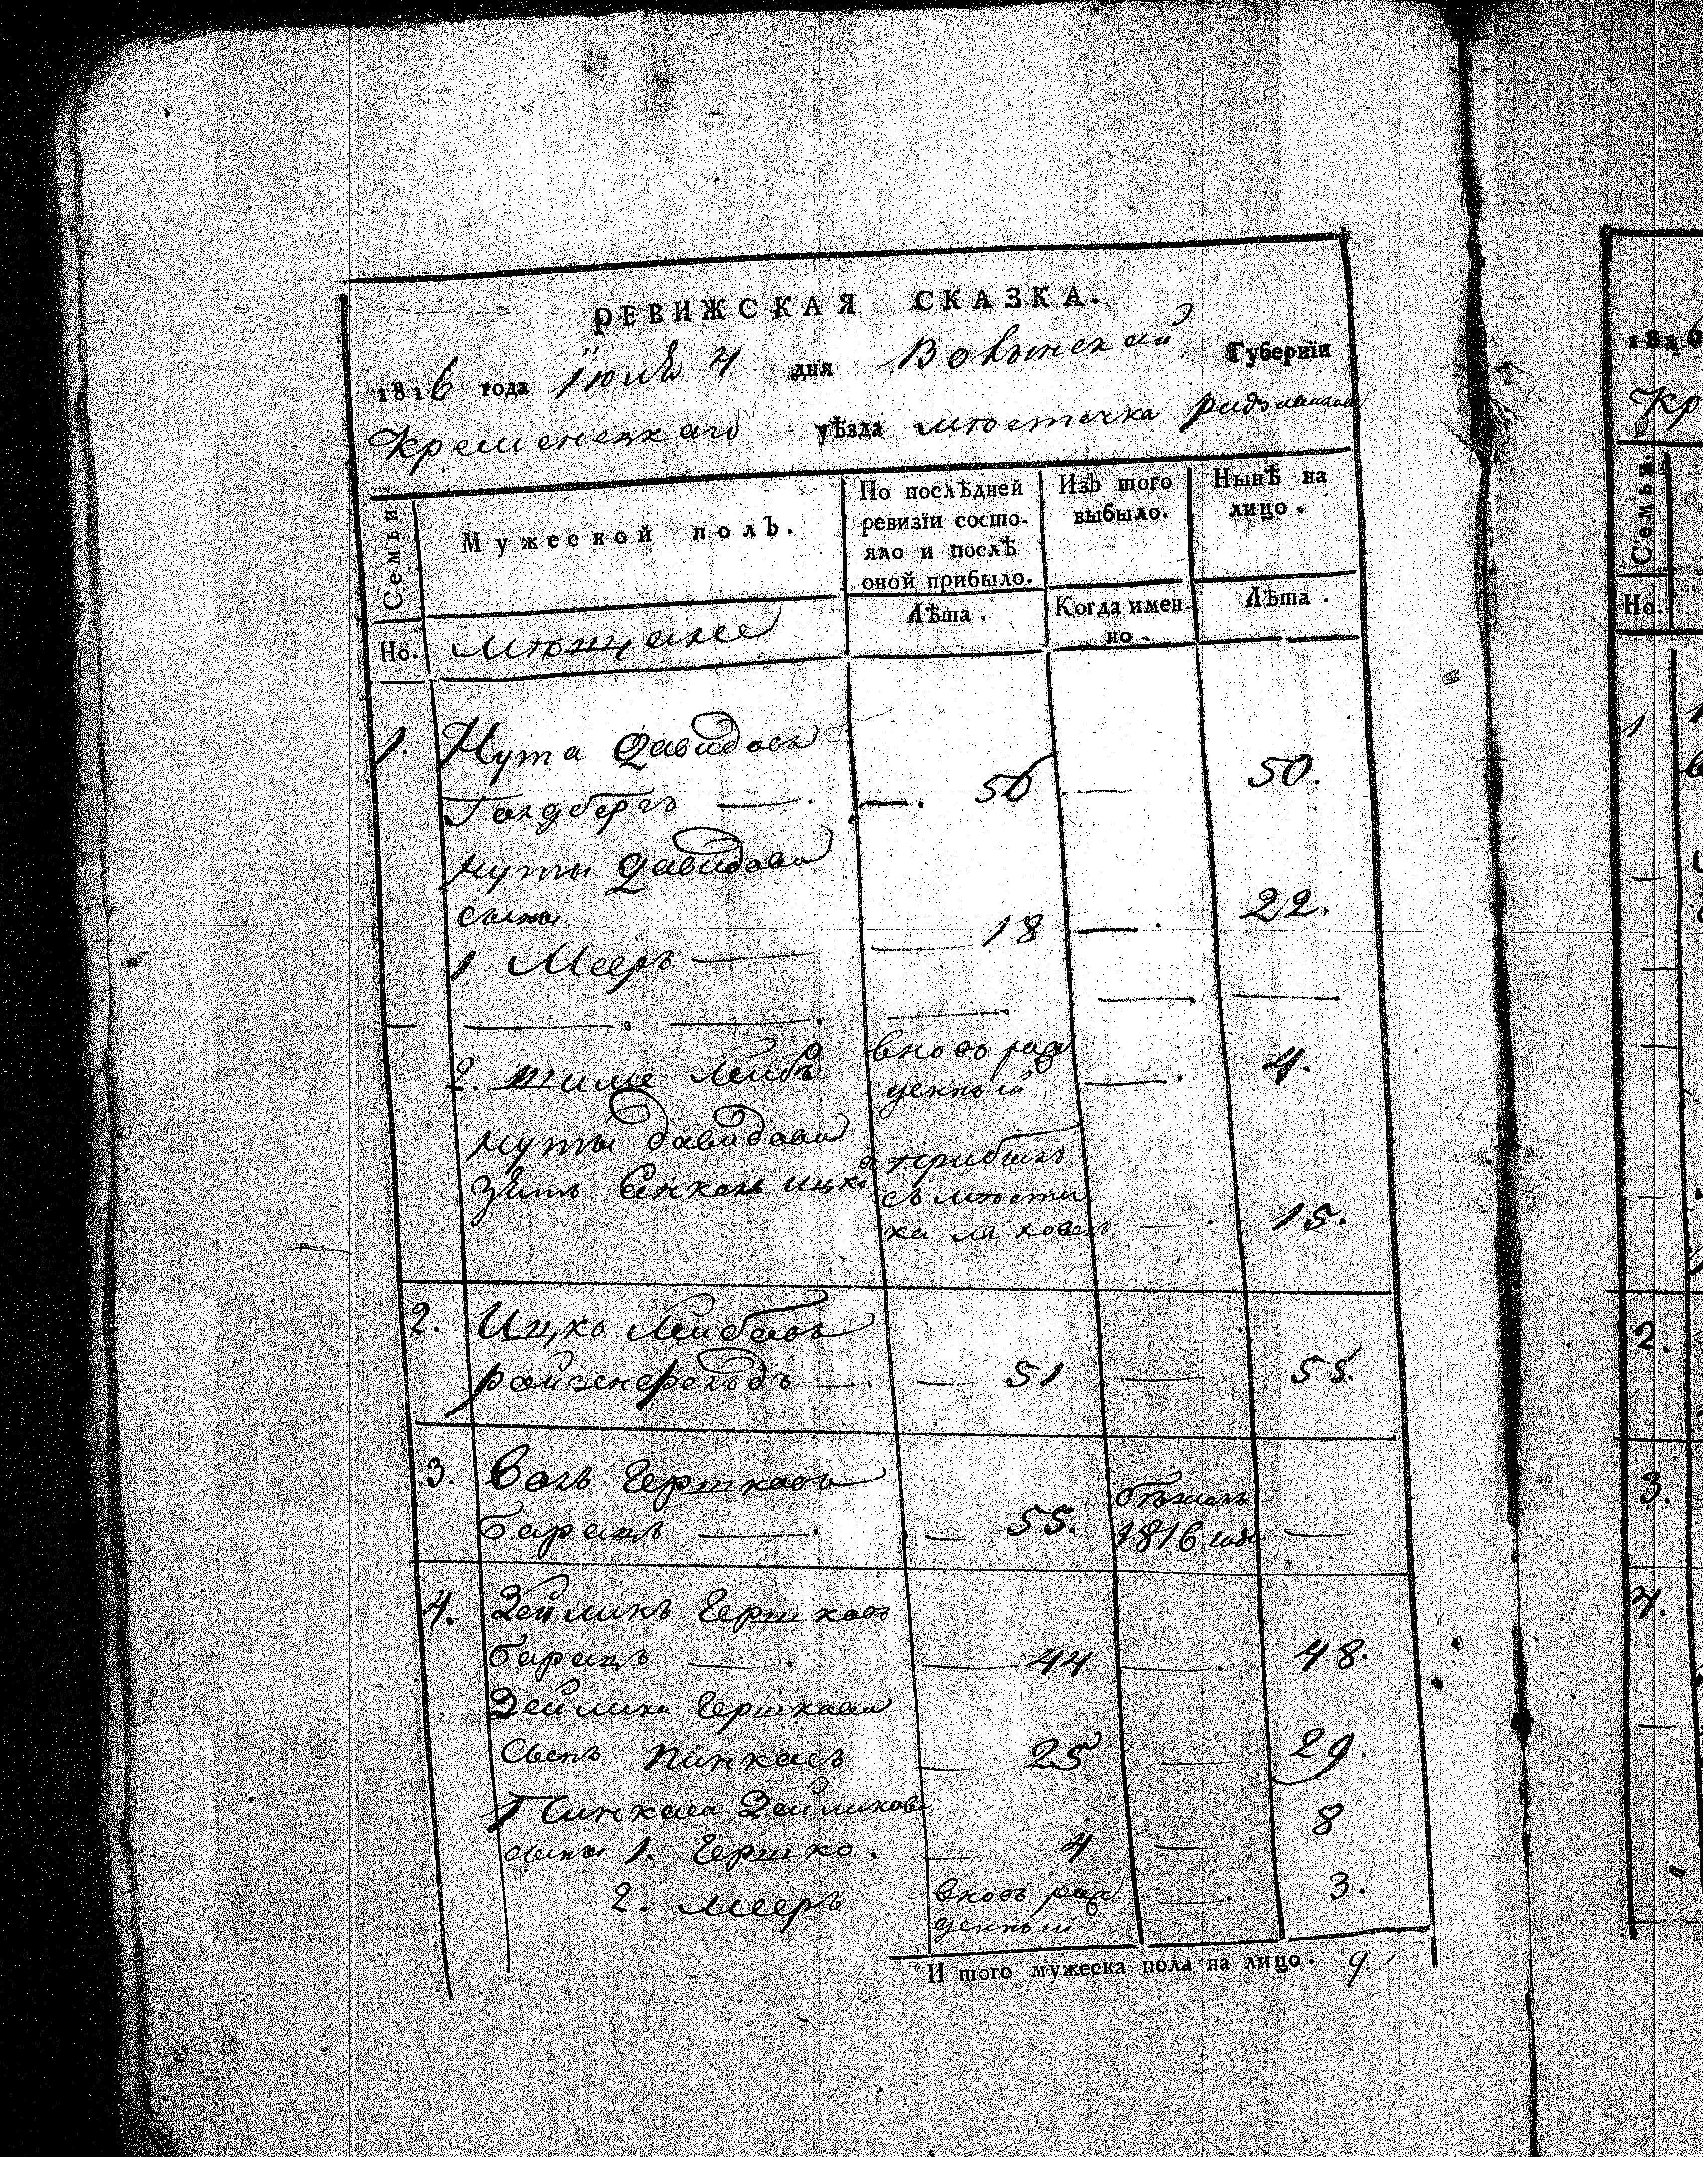 РЕВИЖСКАЯ СКАЗКА.
1816 года Іюля 4 дня Волынской Губернїи
Кременецкаго уѣзда мѣстечка
Семьи
Мужеской полЪ.
По послѣдней ревизїи состо-яло и послѣ оной прибыло.
ИзЪ того выбыло.
Нынѣ на лицо.
Но.
мѣщане
Лѣта.
Когда имен-но.
Лѣта.
1. Нута Давидовъ
Голдбергъ — . — . 50 . — 50.
Нуты Давидова
сыны
1 Мееръ — — 18 — . 22.
— — . — . — . — —
2. Шиме Лейбъ вновь рож
денный — . 4.
Нуты Давидова
зять Енкель Ицко прибылъ
съ мѣстеч
ка ля ховецъ — . 15.
2. Ицко Лейбовъ
Ройзенфельдъ — . — 51 — 55.
3. Волъ Гершковъ
барацъ — . . — 55. бѣжалъ
1816 года —
4. Зейликъ Гершковъ
барацъ — . — 44 — . 48.
Зейлика Гершкова
сынъ Пинкасъ — 25 — 29.
Пинкаса Зейликова
сыны 1. Гершко . — 4 — 8
2. Мееръ вновь рож
денный — . 3.
И того мужеска пола на лицо. 9.
1816
Кр
Семьи.
Но.
1
2.
3.
4.